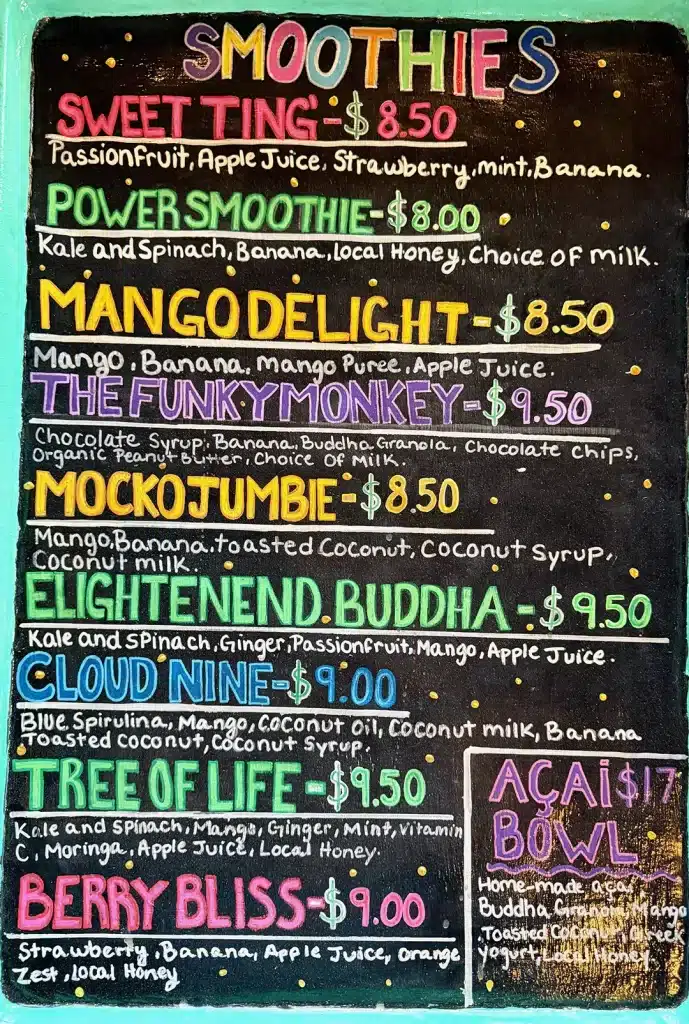 SMOOTHIES
SWEET TING' - $8.50
Passionfruit, Apple Juice, Strawberry, mint, Banana.
POWER SMOOTHIE - $8.00
Kale and Spinach, Banana, Local Honey, Choice of milk.
MANGO DELIGHT - $8.50
Mango, Banana, Mango Puree, Apple Juice.
THE FUNKY MONKEY - $9.50
Chocolate Syrup, Banana, Buddha Granola, Chocolate Chips,
Organic Peanut Butter, Choice Of Milk.
MOCKO JUMBIE - $8.50
Mango, Banana, toasted Coconut, Coconut Syrup,
Coconut milk.
ELIGHTENEND BUDDHA - $9.50
Kale and Spinach, Ginger, Passionfruit, Mango, Apple Juice.
CLOUD NINE - $9.00
Blue Spirulina, Mango, Coconut Oil, Coconut milk, Banana
Toasted Coconut, Coconut Syrup.
TREE OF LIFE - $9.50
Kale and Spinach, Mango, Ginger, Mint, Vitamin
C, Moringa, Apple Juice, Local Honey.
BERRY BLISS - $9.00
Strawberry, Banana, Apple Juice, Orange
Zest, Local Honey
AÇAI $17
BOWL
Home-made açai
Buddha Granola, Mango
Toasted Coconut, Greek
yogurt, Local Honey.